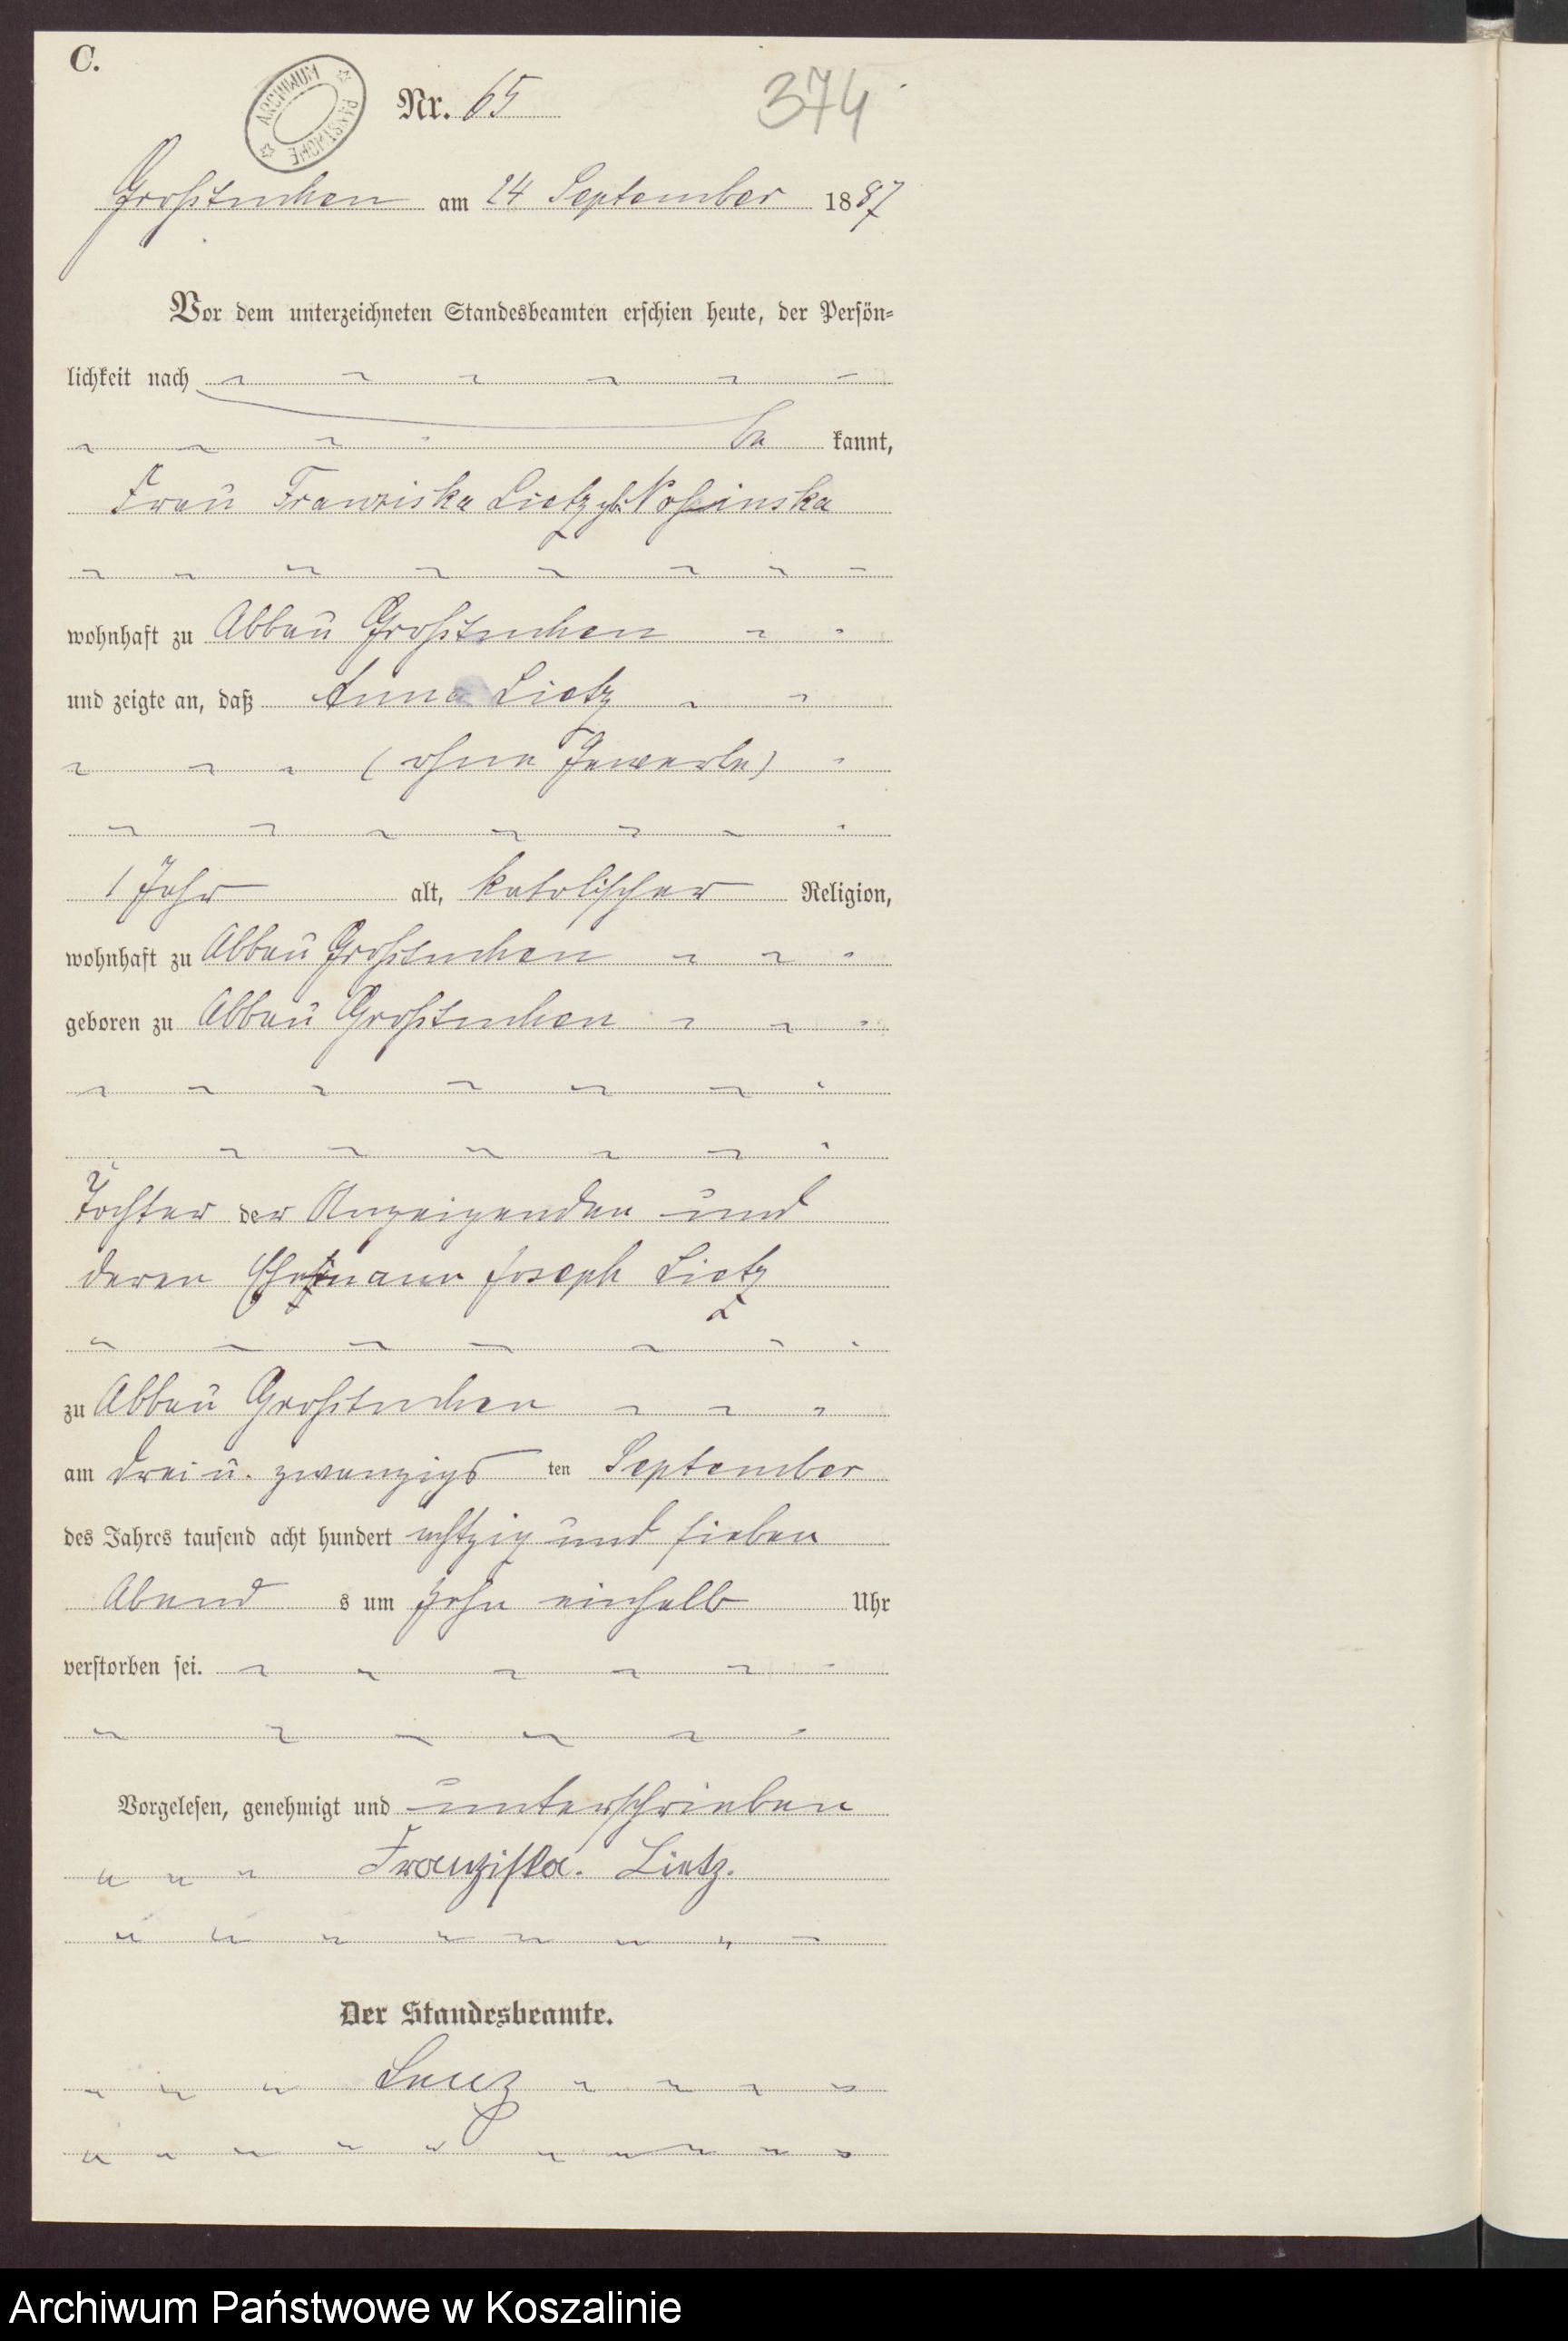 C.
ARCHIWUM PAŃSTWOWE
Nr. 65
374
Großtuchen am 24 September 1887
Vor dem unterzeichneten Standesbeamten erschien heute, der Persön-
lichkeit nach
be kannt,
Frau Franziska Lietz geb.
wohnhaft zu Abbau Großtuchen
und zeigte an, daß Anna Lietz
(ohne Gewerbe)
1 Jahr alt, katolischer Religion,
wohnhaft zu Abbau Großtuchen
geboren zu Abbau Großtuchen
Tochter der Anzeigenden und
deren Ehemann Joseph Lietz
zu Abbau Großtuchen
am drei u. zwanzigs ten September
des Jahres tausend acht hundert achtzig und sieben
Abend s um zehn einhalb Uhr
verstorben sei.
Vorgelesen, genehmigt und unterschrieben
Franziska. Lietz.
Der Standesbeamte.
Archiwum Państwowe w Koszalinie